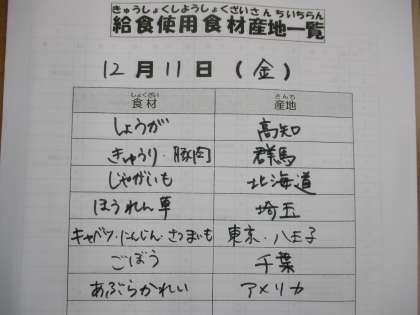 きゅうしょくしようしょくざいさんちいちらん
給食使用食材産地一覧
12月11日(金)
しょくざい さんち
食材 産地
しょうが 高知
きゅうり・豚肉 群馬
じゃがいも 北海道
ほうれん草 埼玉
キャベツ・にんじん・さつまいも 東京・八王子
ごぼう 千葉
あぶらかれい アメリカ